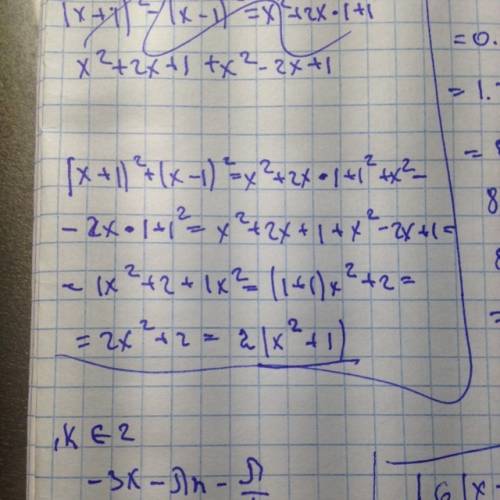 (x+1)² - (x-1)² = x²+2x·1+1
x²+2x+1 +x²-2x+1
(x+1)²+(x-1)²=x²+2x·1+1²+x²-
-2x·1+1²= x²+2x+1+x²-2x+1=
= 1x²+2+1x²= (1+1)x²+2=
= 2x²+2 = 2(x²+1)
,K ∈ Z
-3x - πn - π
=0.
= 1.
= 8
8
=